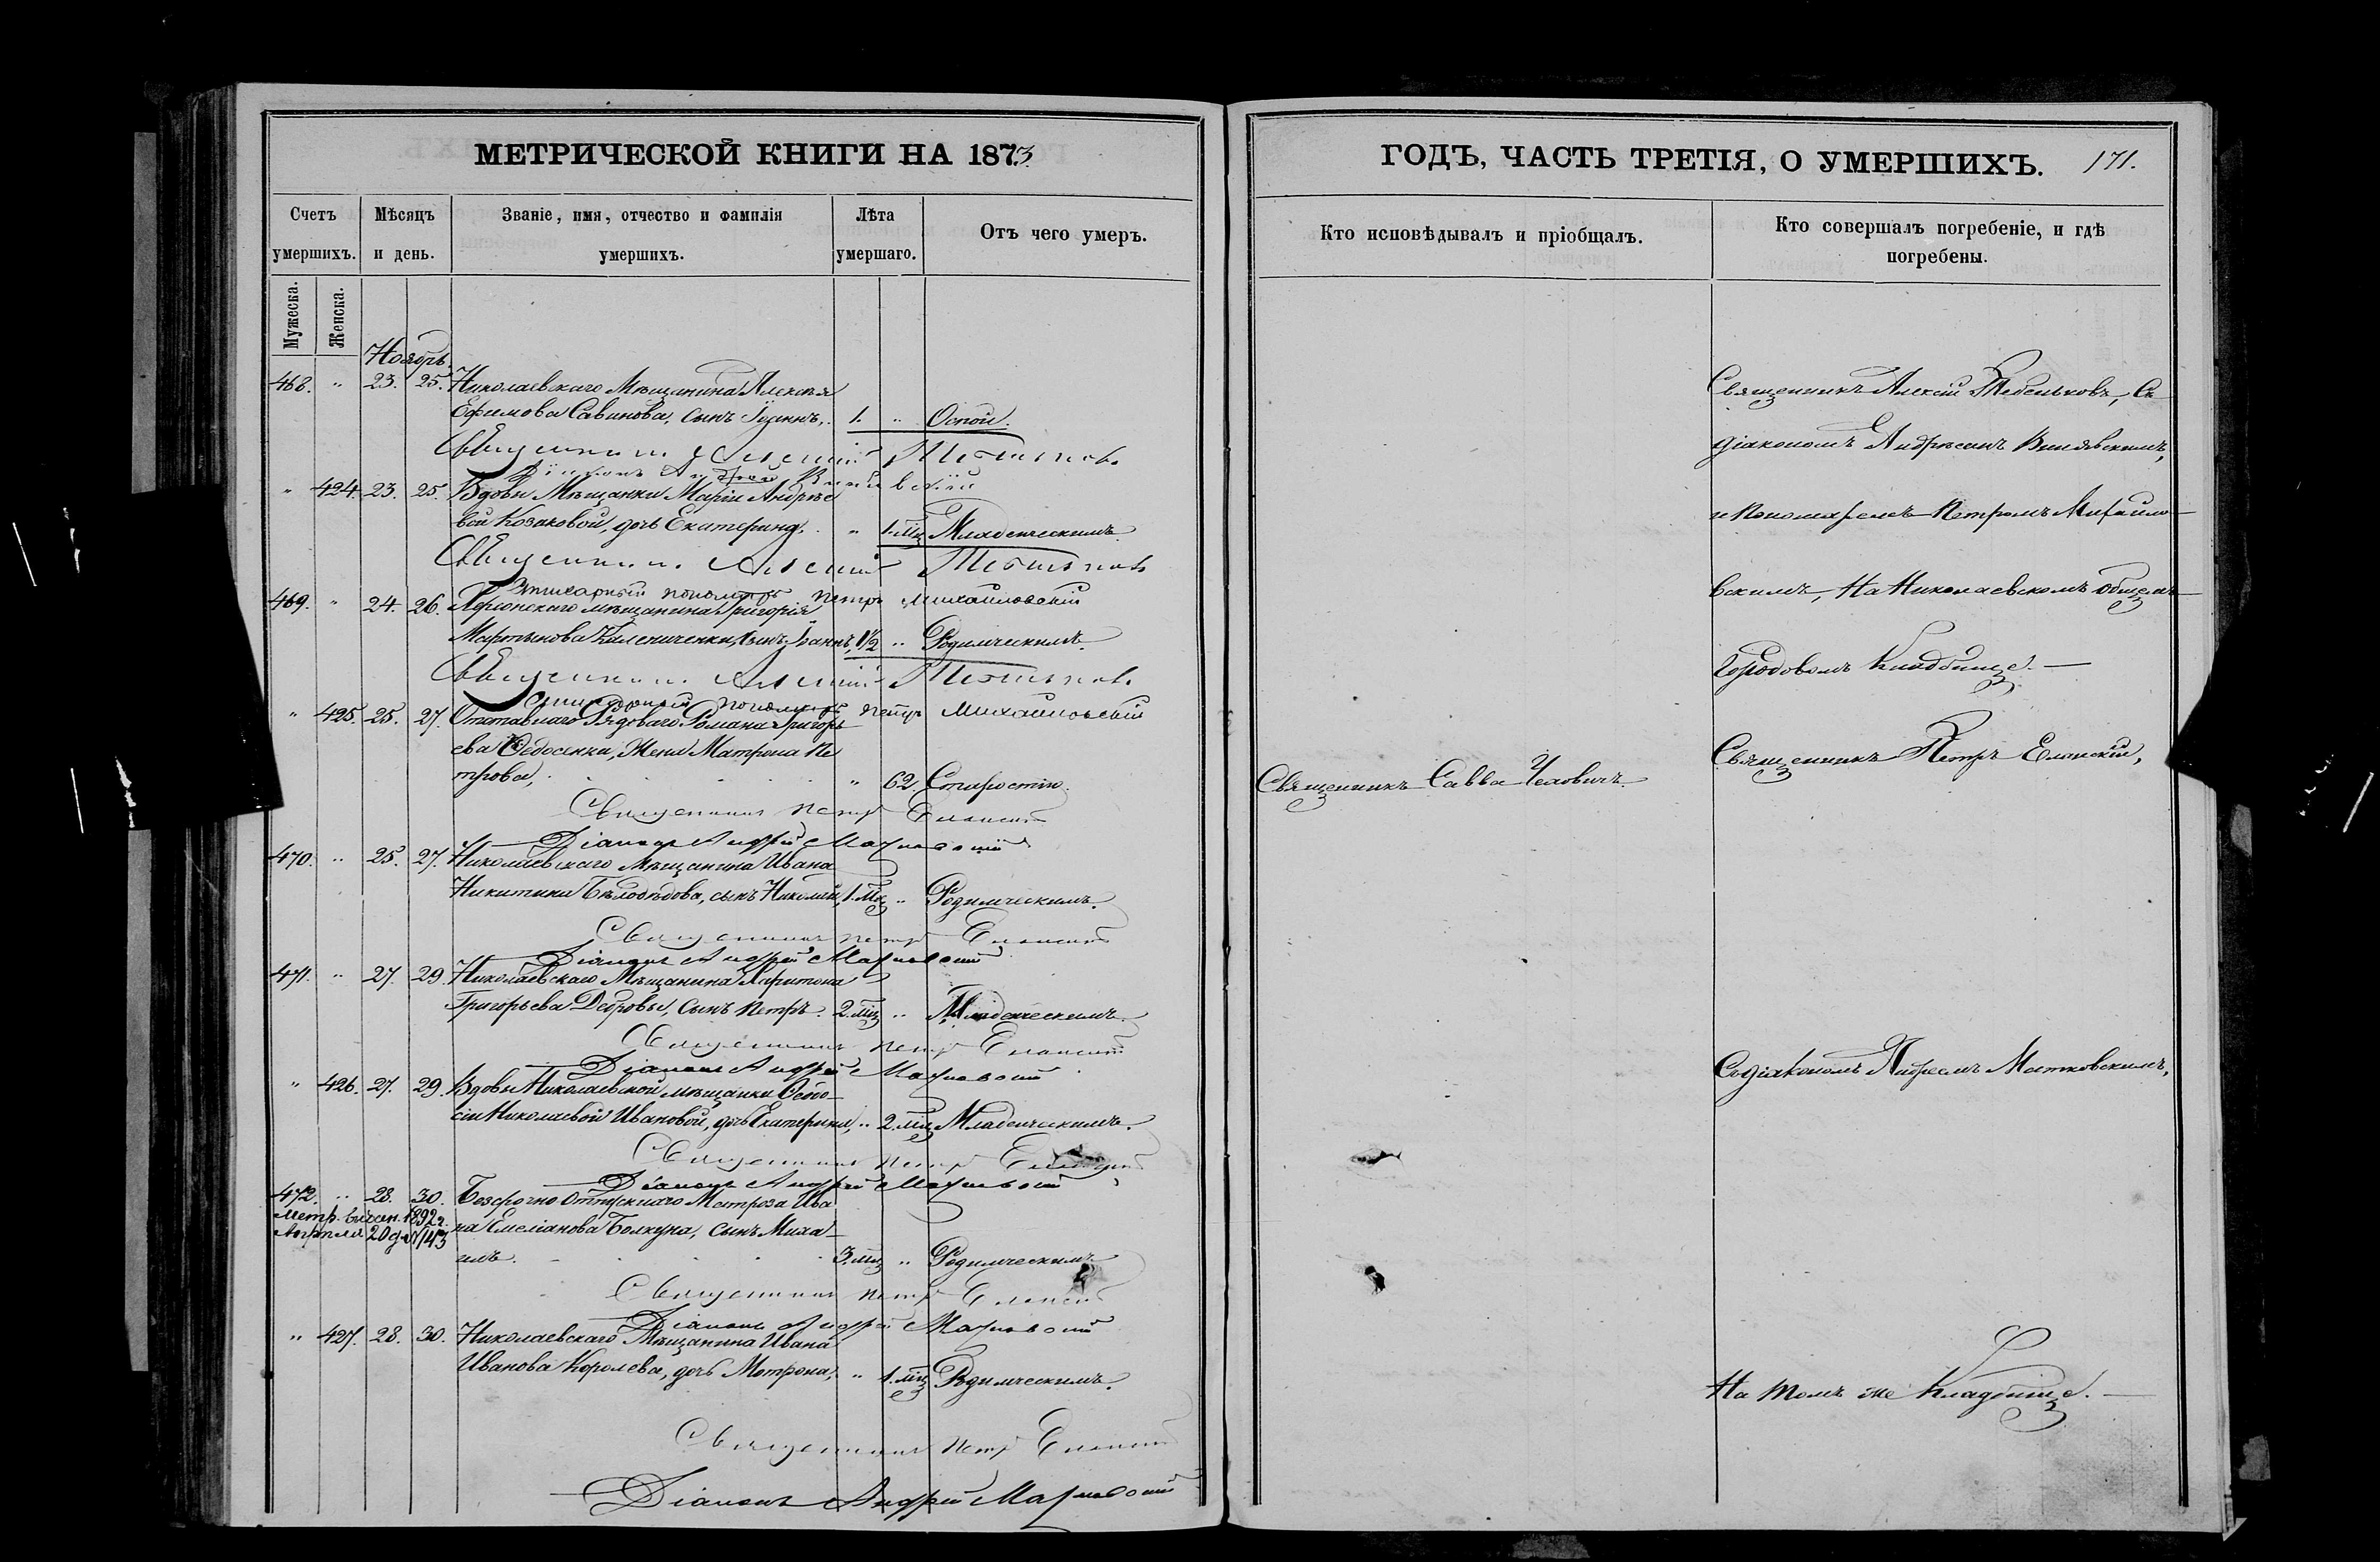 МЕТРИЧЕСКОЙ КНИГИ НА 1873
Счетъ умершихъ.
Мѣсяцъ и день.
Званіе, имя, отчество и фамилія умершихъ.
Лѣта умершаго.
Отъ чего умеръ.
Мужеска.
Женска.
Ноябрь
468. " 23. 25. Николаевскаго Мѣщанина Алексѣя
Ефимова Савинова, сынъ Іоаннъ, 1. " Оспой.
Священникъ Алексій
Діаконъ Андрей
" 424. 23. 25. Вдовы Мѣщанки Маріи Андрѣе
вой Козаковой, дочь Екатерина, " 1. мц Младенческимъ
Священникъ Алексій
469. " 24. 26. Херсонскаго мѣщанина Григорія
пономарь Петръ Михайловскій
Мартынова сынъ Іоаннъ, 1½ " Родимческимъ.
Священникъ Алексій
пономарь Петръ Михайловскій
" 425. 25. 27. Отставнаго Рядоваго Романа Григорь
ева Федосенка, Жена Матрона Пе
трова, " 62. Старостію.
Священникъ Петръ Еланскій
Діаконъ Андрей
470. " 25. 27. Николаевскаго Мѣщанина Ивана
Никитина Бѣлодѣдова, сынъ Николай, 1. мц " Родимческимъ.
Священникъ Петръ Еланскій
Діаконъ Андрей
471. " 27. 29. Николаевскаго Мѣщанина Харитона
Григорьева сынъ Петръ. 2. мц " Младенческимъ.
Священникъ Петръ Еланскій
Діаконъ Андрей
" 426. 27. 29. Вдовы Николаевской мѣщанки Ѳеодо-
сіи Николаевой Ивановой, дочь Екатерина, " 2. мц Младенческимъ.
Священникъ Петръ
Діаконъ Андрей
472. " 28. 30. Безсрочно Отпускнаго Матроза Ива
Метр. 1892 г.
на Емеліанова Болкуна, сынъ Миха-
Апрѣля 20 д. №143
илъ. 3. мц " Родимческимъ
Священникъ Петръ Еланскій
Діаконъ Андрей
" 427. 28. 30. Николаевскаго Мѣщанина Ивана
Иванова Королева, дочь Матрона, " 1. мц Родимческимъ.
Священникъ Петръ Еланскій
Діаконъ Андрей
ГОДЪ, ЧАСТЬ ТРЕТІЯ, О УМЕРШИХЪ. 171.
Кто исповѣдывалъ и пріобщалъ.
Кто совершалъ погребеніе, и гдѣ погребены.
Священникъ Алексій Тебеньковъ, Съ
діакономъ Андреемъ
и Пономаремъ Петромъ Михайло-
вскимъ, На Николаевскомъ общемъ
Городовомъ Кладбищѣ. —
Священникъ Петръ Еланскій,
Священникъ Савва
Съ діакономъ Андреемъ
На томъ же Кладбищѣ. —